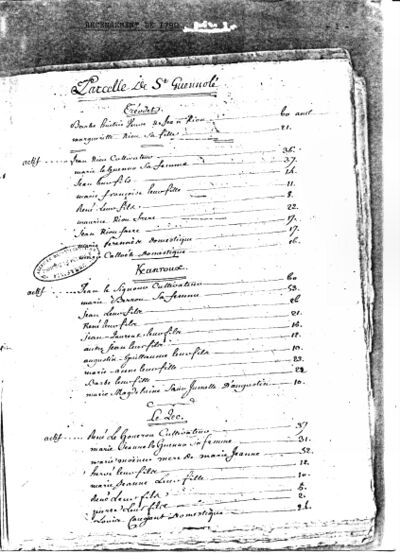 RECENSEMENT DE 1790
Parcelle de St Guennolé
Trévidet
Barbe veuve de Jean Riou 60 ans
marguerite Riou sa fille 21.
actif Jean Riou Cultivateur 36.
marie le Guenno sa femme 37.
Jean leur fils 14.
marie françoise leur fille 11.
René leur fils 8.
maurice Riou frere 22.
Jean Riou frere 17.
marie domestique 17.
domestique 16.
Keanroux
actif Jean le Signour Cultivateur 60
marie Barrou sa femme 53.
Jean leur fils 26
René leur fils 21.
Jean-Laurent leur fils 16.
autre Jean leur fils 12.
augustin-Guillaume leur fils 10.
marie-anne leur fille 23.
Barbe leur fille
marie Magdelaine Saur Jumelle D'augustin 10.
Le Zec.
actif René Le Goneron Cultivateur 37
marie Jeanne le Guenno sa femme 31.
marie mere de marie Jeanne 52.
hervé leur fils 12.
marie Jeanne leur fille 10.
René leur fils 5.
pierre leur fils 2.
Louise domestique